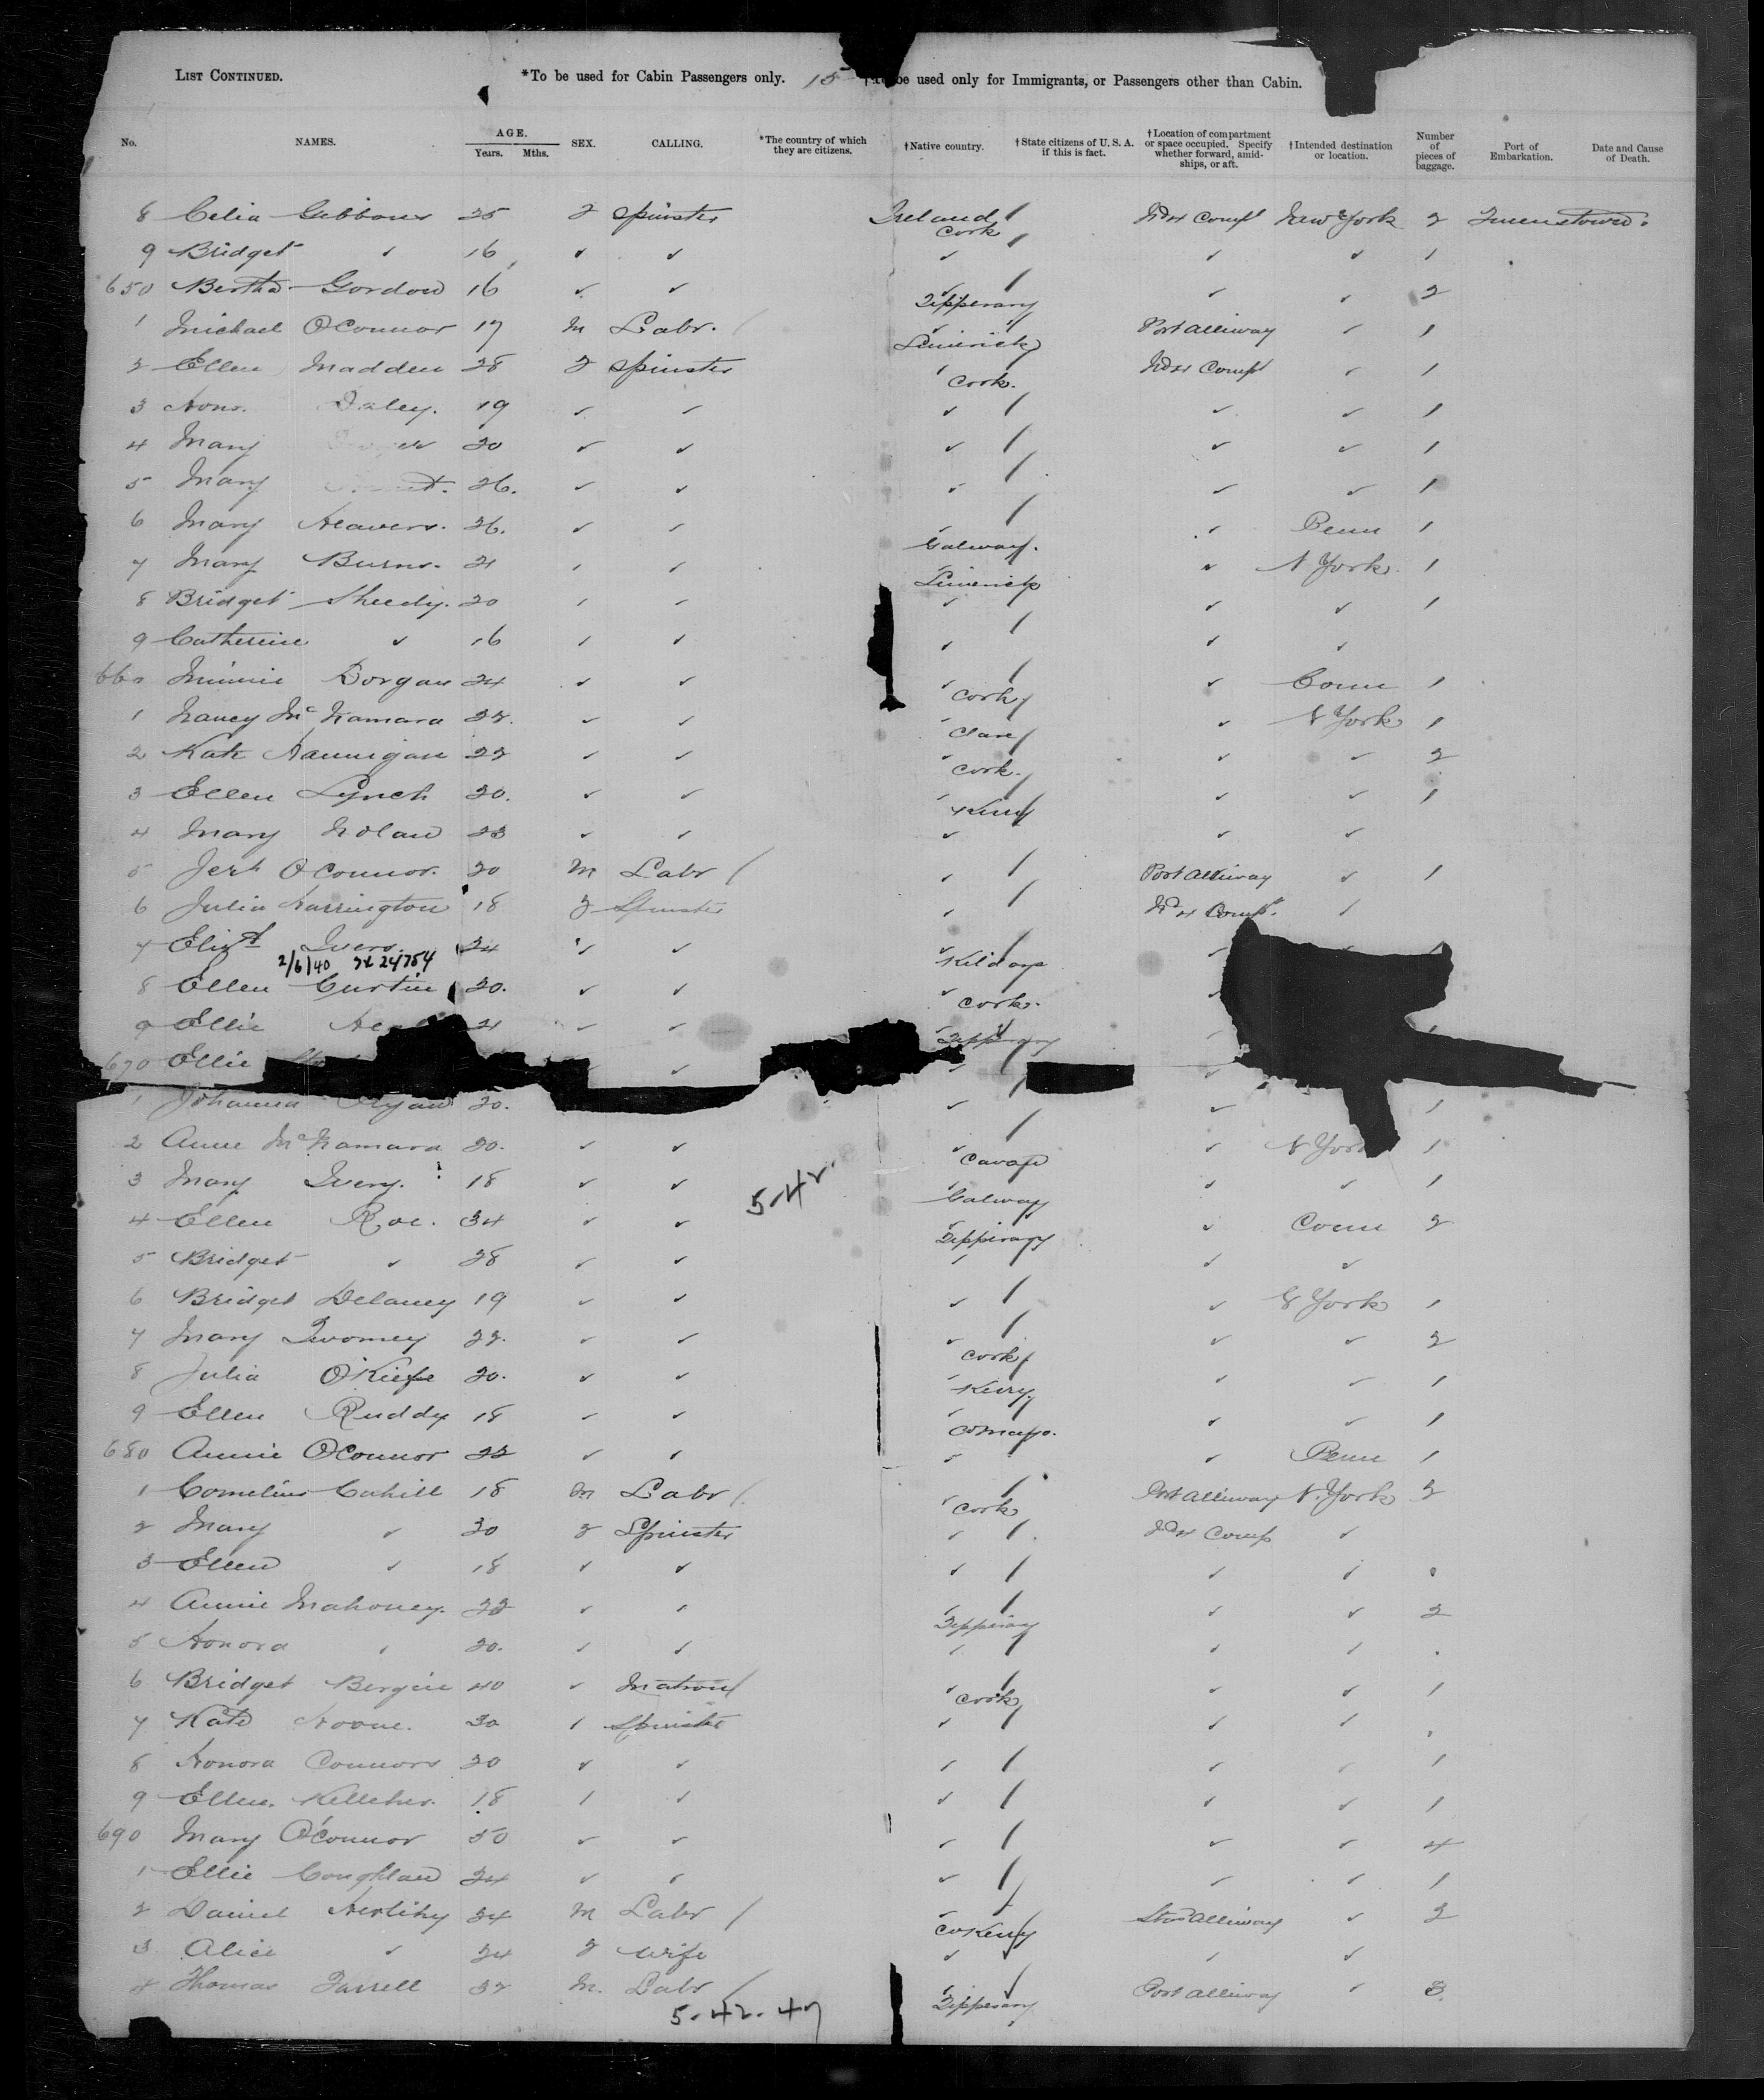 LIST CONTINUED. *To be used for Cabin Passengers only. 15 be used only for Immigrants, or Passengers other than Cabin.
No. NAMES. AGE. Years. Mths. SEX. CALLING. *The country of which they are citizens. †Native country. †State citizens of U. S. A. if this is fact. †Location of compartment or space occupied. Specify whether forward, amidships, or aft. †Intended destination or location. Number of pieces of baggage. Port of Embarkation. Date and Cause of Death.
8 Celia Gibbons 25 F Spinster Ireland Cork Compt New York 2 Queenstown.
9 Bridget ✓ 16 ✓ ✓ ✓ ✓ ✓ 1
650 Bertha Gordon 16 ✓ ✓ ✓ Tipperary ✓ ✓ 2
1 Michael O'Connor 17 M Labr. Limerick Port Alliway ✓ 1
2 Ellen Madden 28 F Spinster Cork. Compt ✓ 1
3 Daley. 19 ✓ ✓ ✓ ✓ ✓ 1
4 Mary 20 ✓ ✓ ✓ ✓ ✓ 1
5 Mary 26. ✓ ✓ ✓ ✓ ✓ 1
6 Mary Heavers. 26. ✓ ✓ Galway. ✓ Penn 1
7 Mary Burns. 21 ✓ ✓ Limerick ✓ N York. 1
8 Bridget Sheedy. 20 ✓ ✓ ✓ ✓ ✓ 1
9 Catherine ✓ 16 ✓ ✓ ✓ ✓ ✓
660 Minnie Dorgan 24 ✓ ✓ Cork ✓ Conn 1
1 Nancy McNamara 22. ✓ ✓ Clare ✓ N York 1
2 Kate Hannigan 22 ✓ ✓ Cork. ✓ ✓ 2
3 Ellen Lynch 20. ✓ ✓ Kerry ✓ ✓ 1
4 Mary Nolan 23 ✓ ✓ ✓ ✓ ✓
5 O'Connor. 20 M Labr ✓ Port Alliway ✓ 1
6 Julia Harrington 18 F Spinster ✓ Comp. ✓
7 Elizth Ivers 24 ✓ ✓ Kildare
2/6/40 24754
8 Ellen Curtin 20. ✓ ✓ Cork.
9 Ellie 21 ✓ ✓ Tipperary
670 Ellie ✓ ✓ ✓
1 Johanna Ryan 20. ✓ ✓ 1
2 Anne McNamara 20. ✓ ✓ Cavan ✓ N York 1
3 Mary Ivery. 18 ✓ ✓ Galway ✓ ✓ 1
5-42.
4 Ellen Roe. 34 ✓ ✓ Tipperary ✓ Conn 2
5 Bridget ✓ 28 ✓ ✓ ✓ ✓ ✓
6 Bridget Delaney 19 ✓ ✓ ✓ ✓ N York 1
7 Mary Twomey 22. ✓ ✓ Cork ✓ ✓ 2
8 Julia O'Kiefe 20. ✓ ✓ Kerry. ✓ ✓ 1
9 Ellen Ruddy 18 ✓ ✓ Co Mayo. ✓ ✓ 1
680 Annie O'Connor 22 ✓ ✓ ✓ ✓ Penn 1
1 Cornelius Cahill 18 M Labr Cork Port Alliway N. York 2
2 Mary ✓ 20 F Spinster ✓ Comp ✓
3 Ellen ✓ 18 ✓ ✓ ✓ ✓ ✓
4 Annie Mahoney. 22 ✓ ✓ Tipperary ✓ ✓ 2
5 Honora ✓ 20. ✓ ✓ ✓ ✓ ✓
6 Bridget Bergin 40 ✓ Matron Cork ✓ ✓ 1
7 Kate Noone. 30 ✓ Spinster ✓ ✓ ✓
8 Honora Connors 20 ✓ ✓ ✓ ✓ ✓ 1
9 Ellen Kelleher. 18 ✓ ✓ ✓ ✓ ✓ 1
690 Mary O'Connor 50 ✓ ✓ ✓ ✓ ✓ 4
1 Ellie Coughlan 24 ✓ ✓ ✓ ✓ ✓ 1
2 Daniel Herlihy 34 M Labr Co Kerry Alliway ✓ 2
3 Alice ✓ 24 F Wife ✓ ✓ ✓
4 Thomas Farrell 32 M. Labr Tipperary Port Alliway ✓ 3.
5-42-47